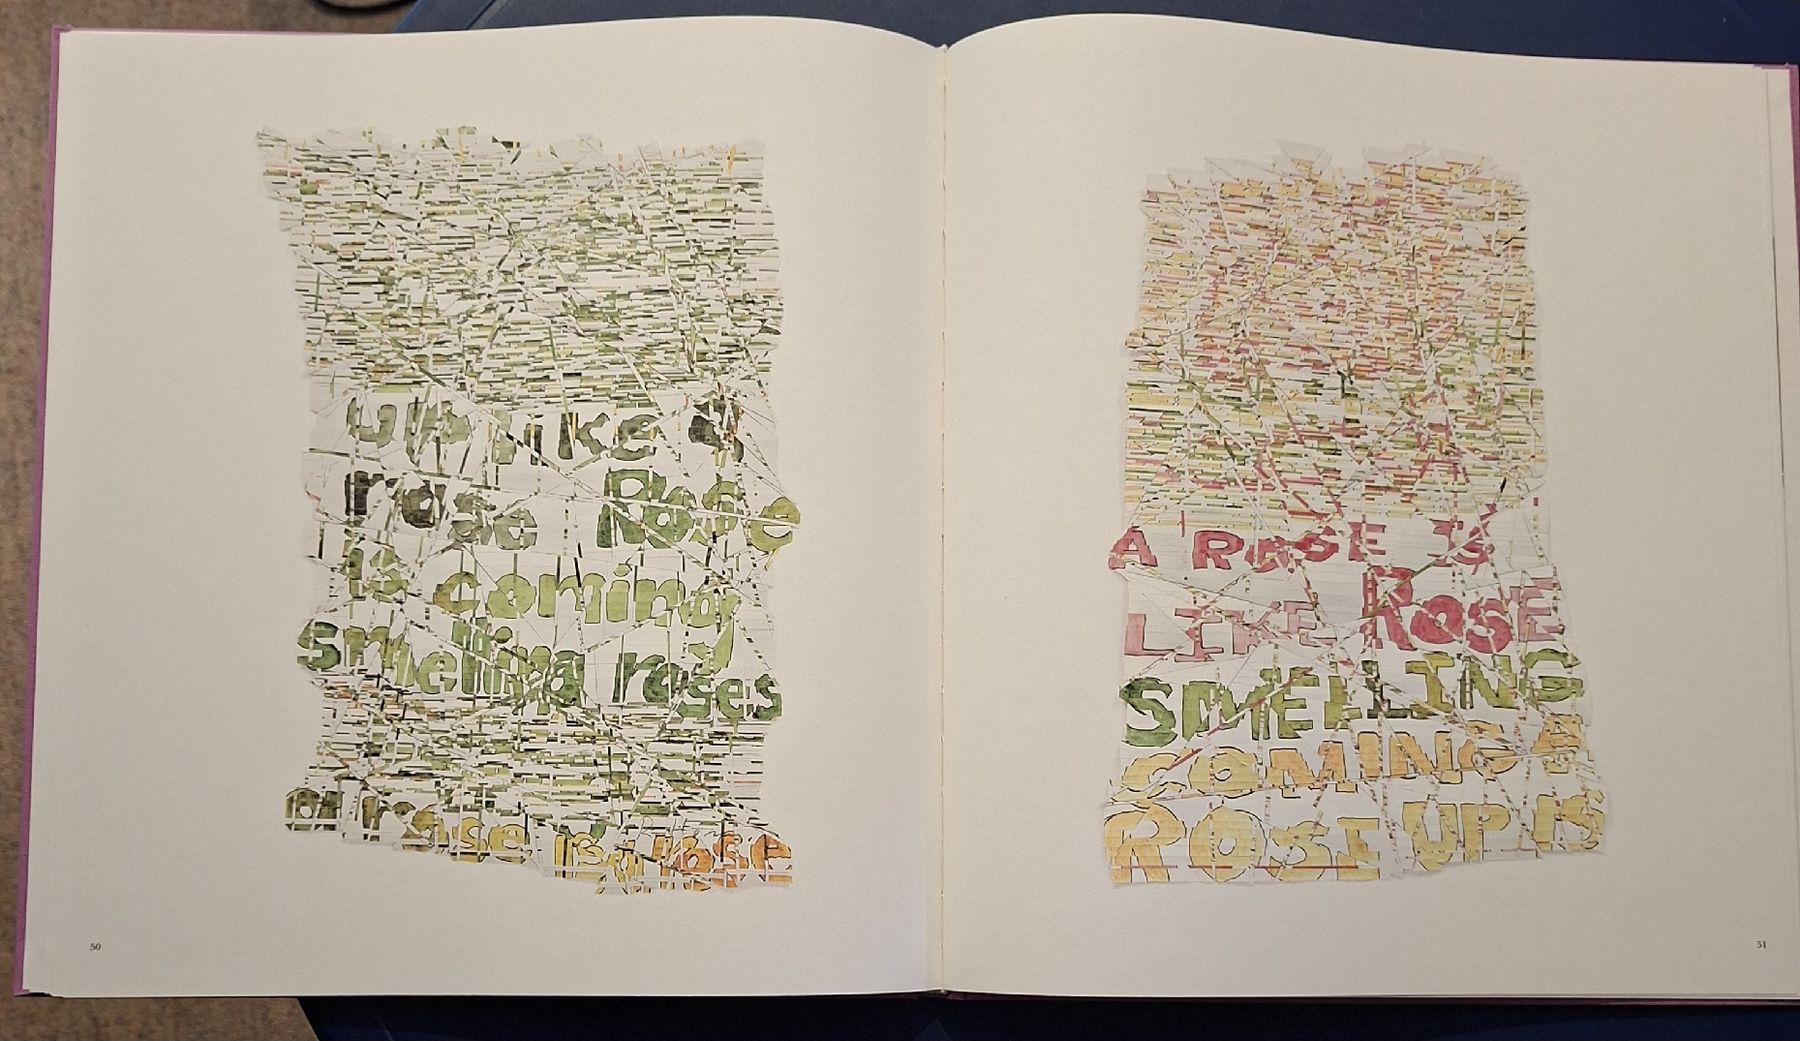 up like a
rose Rose
is coming
smelling roses
or rose is a rose
50
A ROSE IS
LIKE ROSE
SMELLING
COMING A
ROSE UP IS
51